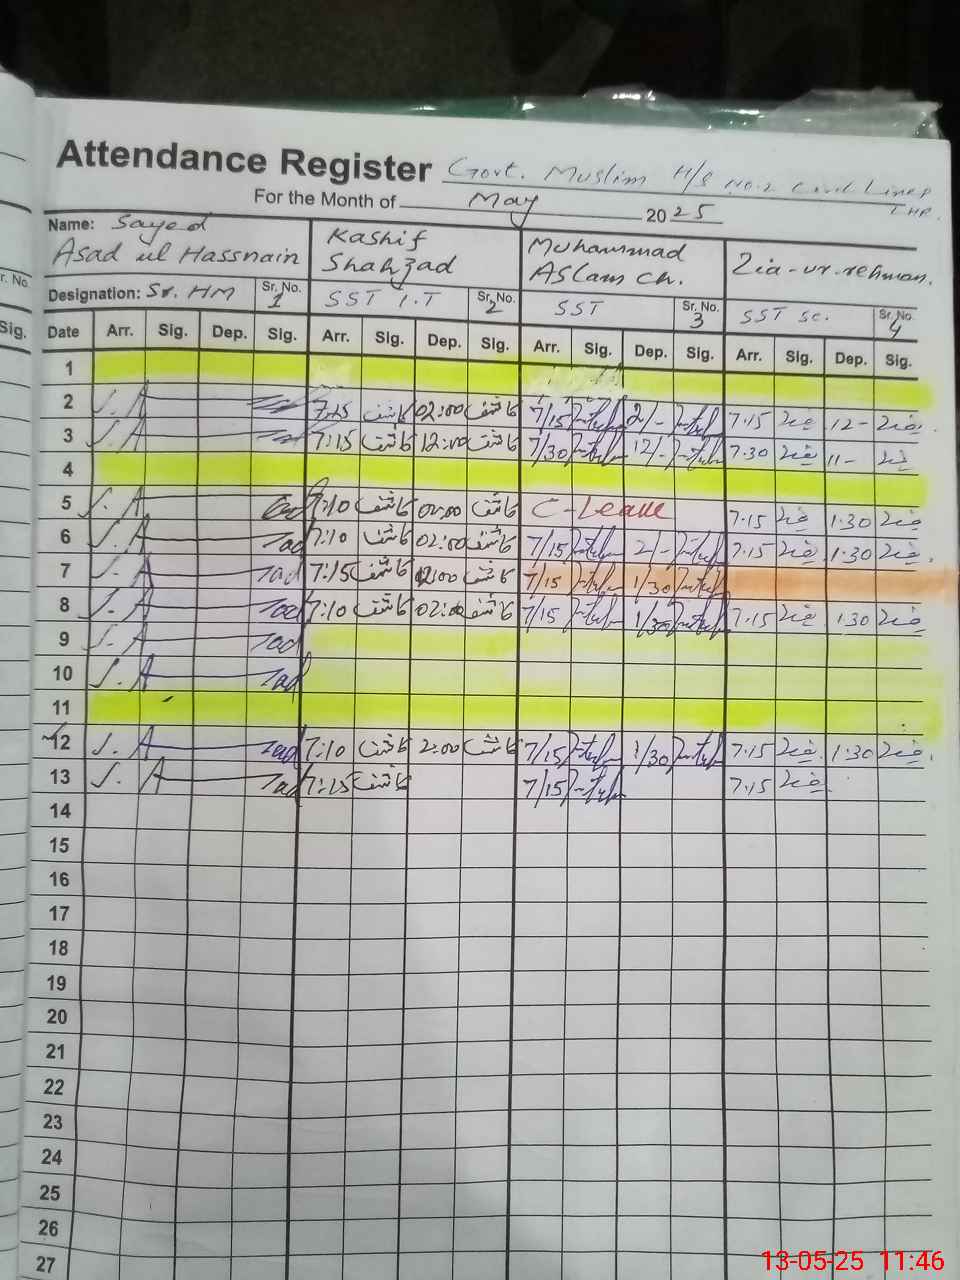 Attendance Register Govt. Muslim H/S No.2 Civil Lines LHR.
For the Month of May 2025
Name: Sayed Asad ul Hassnain
Kashif Shahzad
Muhammad Aslam Ch.
Zia-ur-rehman.
r. No.
Designation: Sr. HM Sr. No. 1 SST I.T Sr. No. 2 SST Sr. No. 3 SST Sc. Sr. No. 4
Sig.
Date Arr. Sig. Dep. Sig. Arr. Sig. Dep. Sig. Arr. Sig. Dep. Sig. Arr. Sig. Dep. Sig.
1
2 7:15 کاشف 02:00 کاشف 7/15 2/- 7.15 12-
3 7:15 کاشف 12:00 کاشف 7/30 12/- 7.30 11-
4
5 7:10 کاشف 02:00 کاشف C-Leave 7.15 1.30
6 7:10 کاشف 02:00 کاشف 7/15 2/- 7.15 1.30
7 7:15 کاشف 02:00 کاشف 7/15 1/30
8 7:10 کاشف 02:00 کاشف 7/15 1/30 7.15 1.30
9
10
11
12 7:10 کاشف 2:00 کاشف 7/15 1/30 7.15 1.30
13 7:15 کاشف 7/15 7.15
14
15
16
17
18
19
20
21
22
23
24
25
26
27
13-05-25 11:46